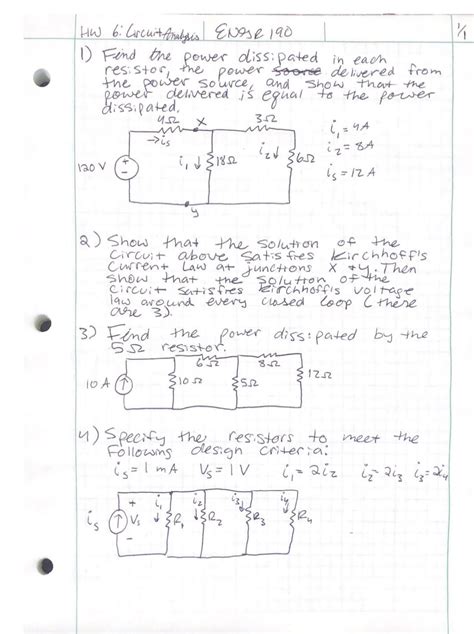 HW 6: Circuit Analysis | ENGR 190 1/1
1) Find the power dissipated in each
resistor, the power soorse delivered from
the power source, and show that the
power delivered is equal to the power
dissipated.
4Ω x 3Ω
→is
i₁ = 4A
120 V + - i₁ ↓ 18Ω i₂ ↓ 6Ω
i₂ = 8A
is = 12 A
y
2) Show that the solution of the
circuit above satisfies Kirchhoff's
Current Law at junctions X & Y. Then
show that the solution of the
circuit satisfies Kirchhoff's voltage
law around every closed loop (there
are 3).
3) Find the power dissipated by the
5Ω resistor.
6Ω 8Ω
10 A ↑ 10Ω 5Ω 12Ω
4) Specify the resistors to meet the
following design criteria:
is = 1 mA Vs = 1V i₁ = 2i₂ i₂ = 2i₃ i₃ = 2i₄
is ↑ + V₁ - i₁ ↓ R₁ i₂ ↓ R₂ i₃ ↓ R₃ i₄ ↓ R₄